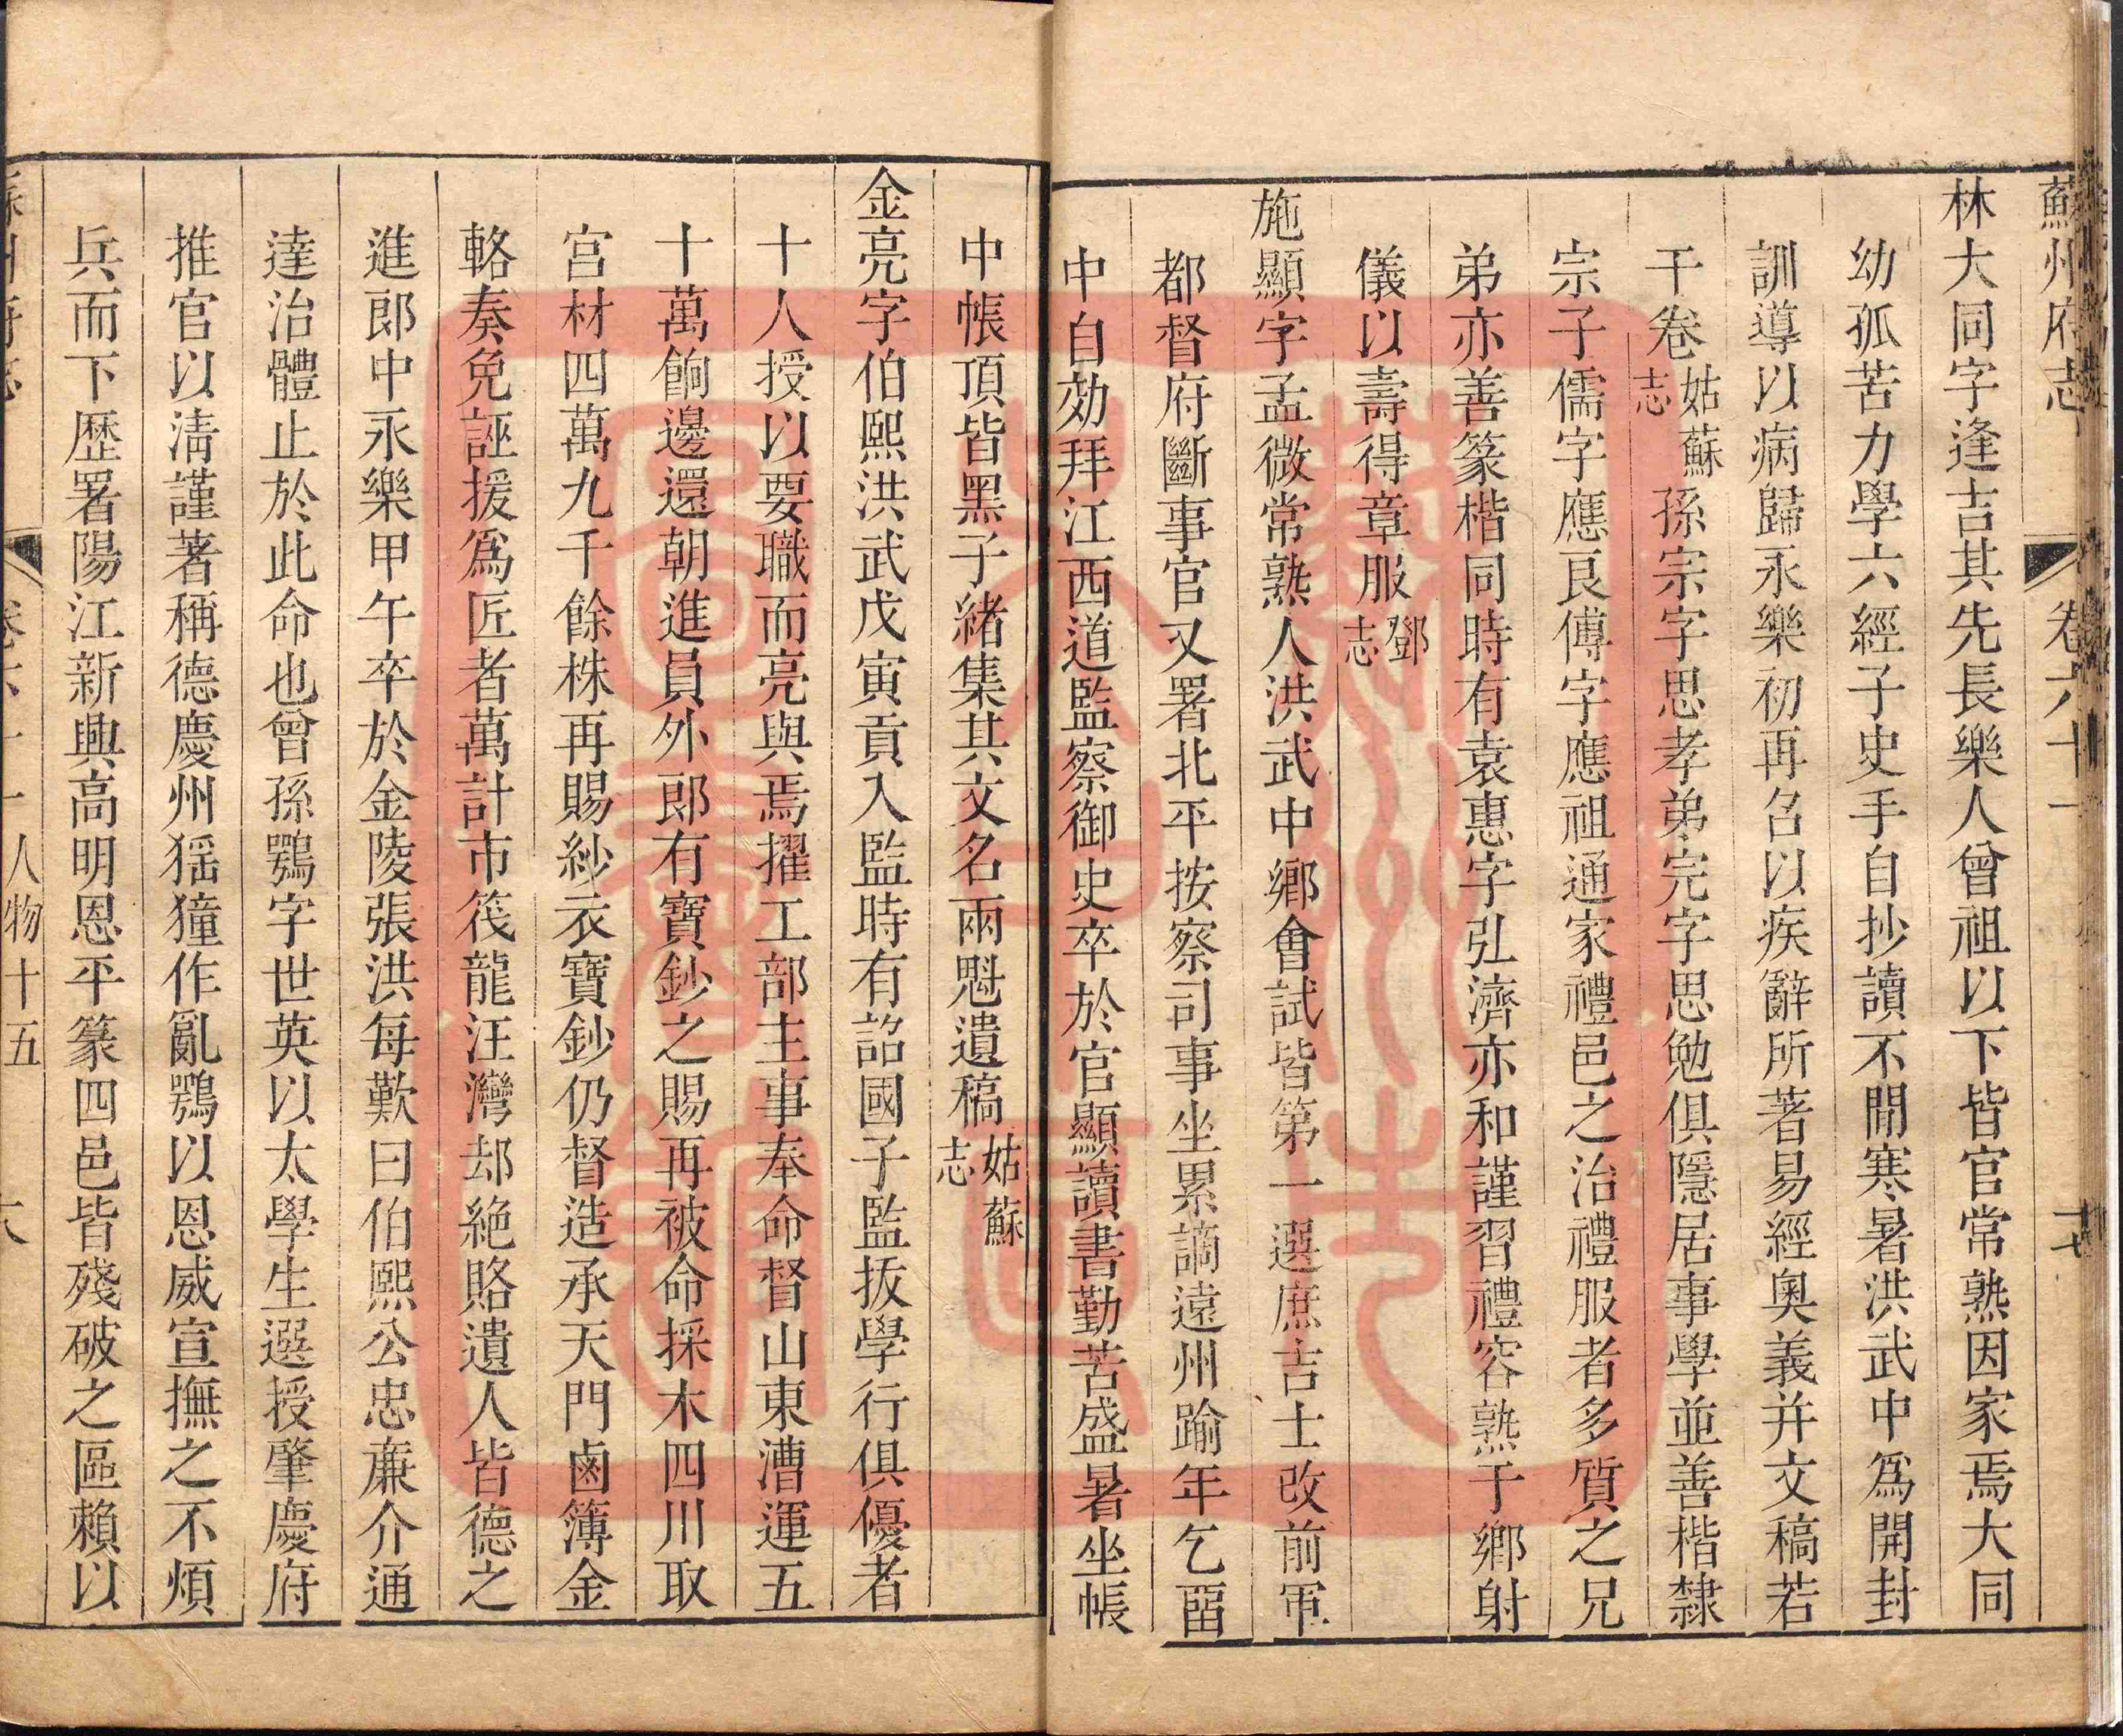 蘇州府志 卷六十一 十七
林大同字逢吉其先長樂人曾祖以下皆官常熟因家焉大同
幼孤苦力學六經子史手自抄讀不閒寒暑洪武中爲開封
訓導以病歸永樂初再召以疾辭所著易經奧義并文稿若
干卷姑蘇志孫宗字思孝弟完字思勉俱隱居事學並善楷隸
宗子儒字應良傅字應祖通家禮邑之治禮服者多質之兄
弟亦善篆楷同時有袁惠字弘濟亦和謹習禮容熟于鄉射
儀以壽得章服鄧志
施顯字孟微常熟人洪武中鄉會試皆第一選庶吉士改前軍
都督府斷事官又署北平按察司事坐累謫遠州踰年乞畱
中自効拜江西道監察御史卒於官顯讀書勤苦盛暑坐帳
中帳頂皆黑子緒集其文名兩魁遺稿姑蘇志
金亮字伯熙洪武戊寅貢入監時有詔國子監拔學行俱優者
十人授以要職而亮與焉擢工部主事奉命督山東漕運五
十萬餉邊還朝進員外郎有寶鈔之賜再被命採木四川取
宫材四萬九千餘株再賜紗衣寶鈔仍督造承天門鹵簿金
輅奏免誣援爲匠者萬計市筏龍汪灣却絶賂遺人皆德之
進郎中永樂甲午卒於金陵張洪每歎曰伯熙公忠亷介通
達治體止於此命也曾孫鶚字世英以太學生選授肇慶府
推官以淸謹著稱德慶州猺獞作亂鶚以恩威宣撫之不煩
兵而下歷署陽江新興高明恩平篆四邑皆殘破之區賴以
人物十五